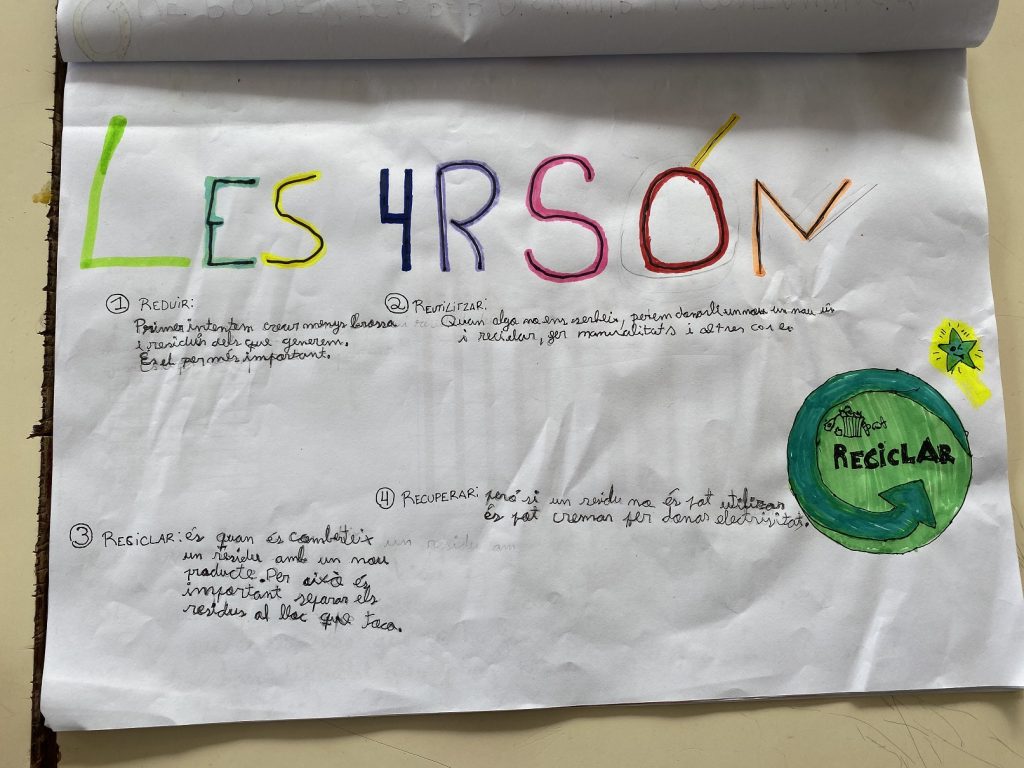 LES 4R SÓN
① REDUIR:
Primer intentem crear menys brossa
i residus dels que generem.
Es el per més important.
② REUTILITZAR:
Quan algo no ens serbeix, un nou ús
i reciclar, fer manualitats i altres coses
③ RECICLAR: és quan és combèrteix
un residu amb un nou
producte. Per això és
important separar els
residus al lloc que toca.
④ RECUPERAR: però si un residu no és pot utilitzar
és pot cremar per donar electrisitat.
RECICLAR